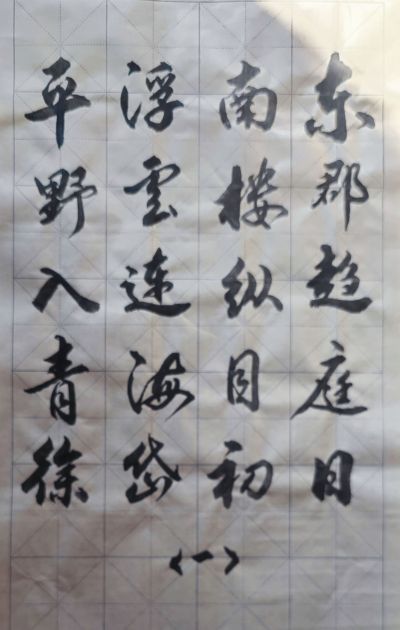 东郡趋庭日
南楼纵目初
浮雲连海岱
平野入青徐
<一>